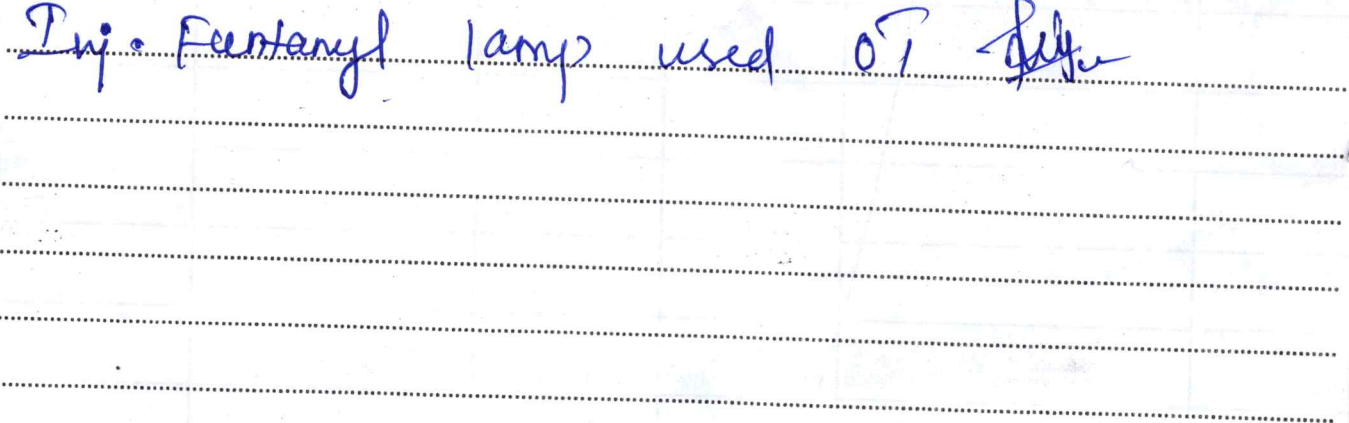 Inj. Fentanyl 1amp used OT